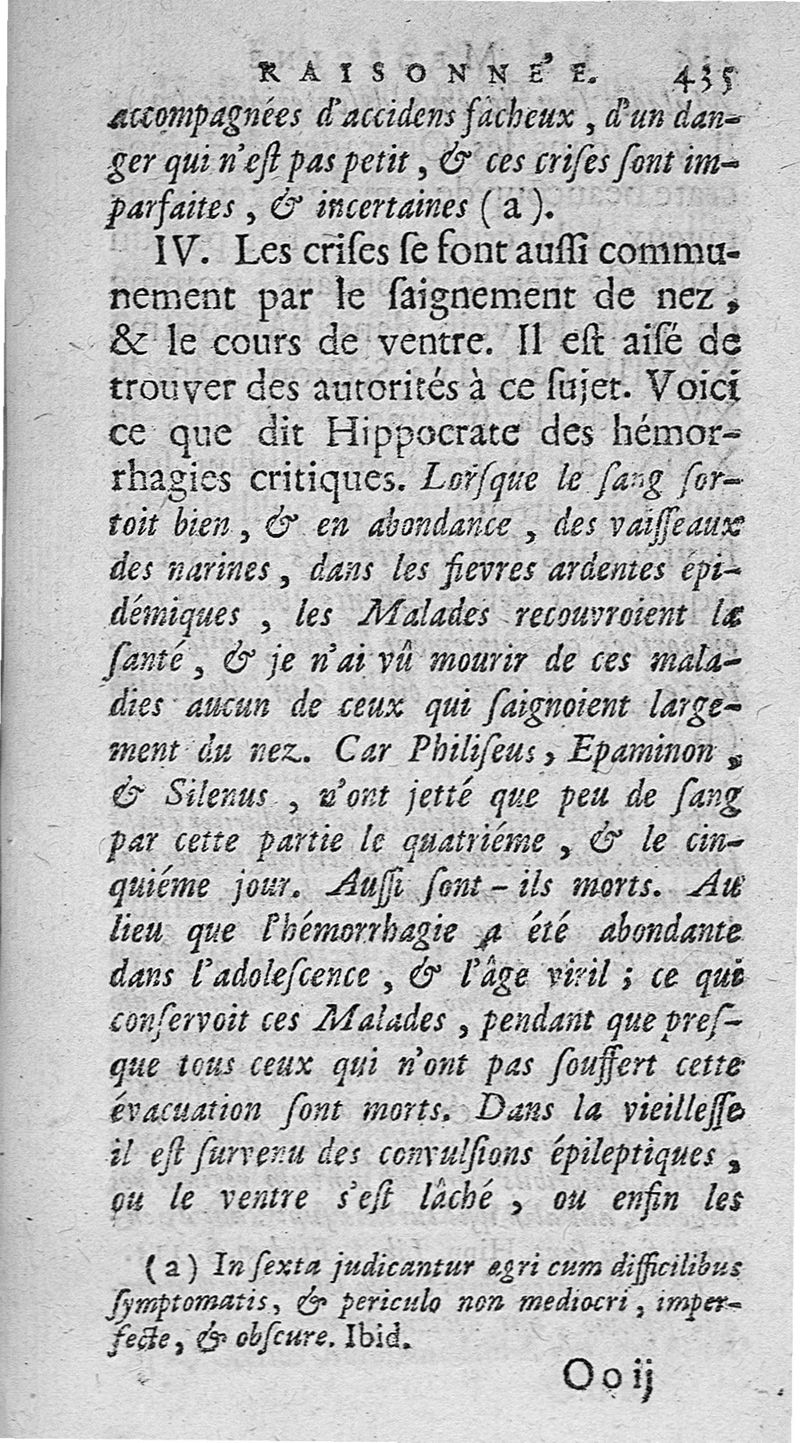 RAISONNÉE. 435
accompagnées d'accidens fâcheux, d'un dan-
ger qui n'eſt pas petit, & ces criſes ſont im-
parfaites, & incertaines (a).
IV. Les criſes ſe font auſſi commu-
nement par le ſaignement de nez,
& le cours de ventre. Il eſt aiſé de
trouver des autorités à ce ſujet. Voici
ce que dit Hippocrate des hémor-
rhagies critiques. Lorſque le ſang ſor-
toit bien, & en abondance, des vaiſſeaux
des narines, dans les fievres ardentes épi-
démiques, les Malades recouvroient la
ſanté, & je n'ai vû mourir de ces mala-
dies aucun de ceux qui ſaignoient large-
ment du nez. Car Philiſeus, Epaminon,
& Silenus, n'ont jetté que peu de ſang
par cette partie le quatriéme, & le cin-
quiéme jour. Auſſi ſont-ils morts. Au
lieu que l'hémorrhagie a été abondante
dans l'adoleſcence, & l'âge viril; ce qui
conſervoit ces Malades, pendant que preſ-
que tous ceux qui n'ont pas ſouffert cette
évacuation ſont morts. Dans la vieilleſſe
il eſt ſurvenu des convulſions épileptiques,
ou le ventre s'eſt lâché, ou enfin les
(a) In ſexta judicantur ægri cum difficilibus
ſymptomatis, & periculo non mediocri, imper-
fecte, & obſcure. Ibid.
Ooij